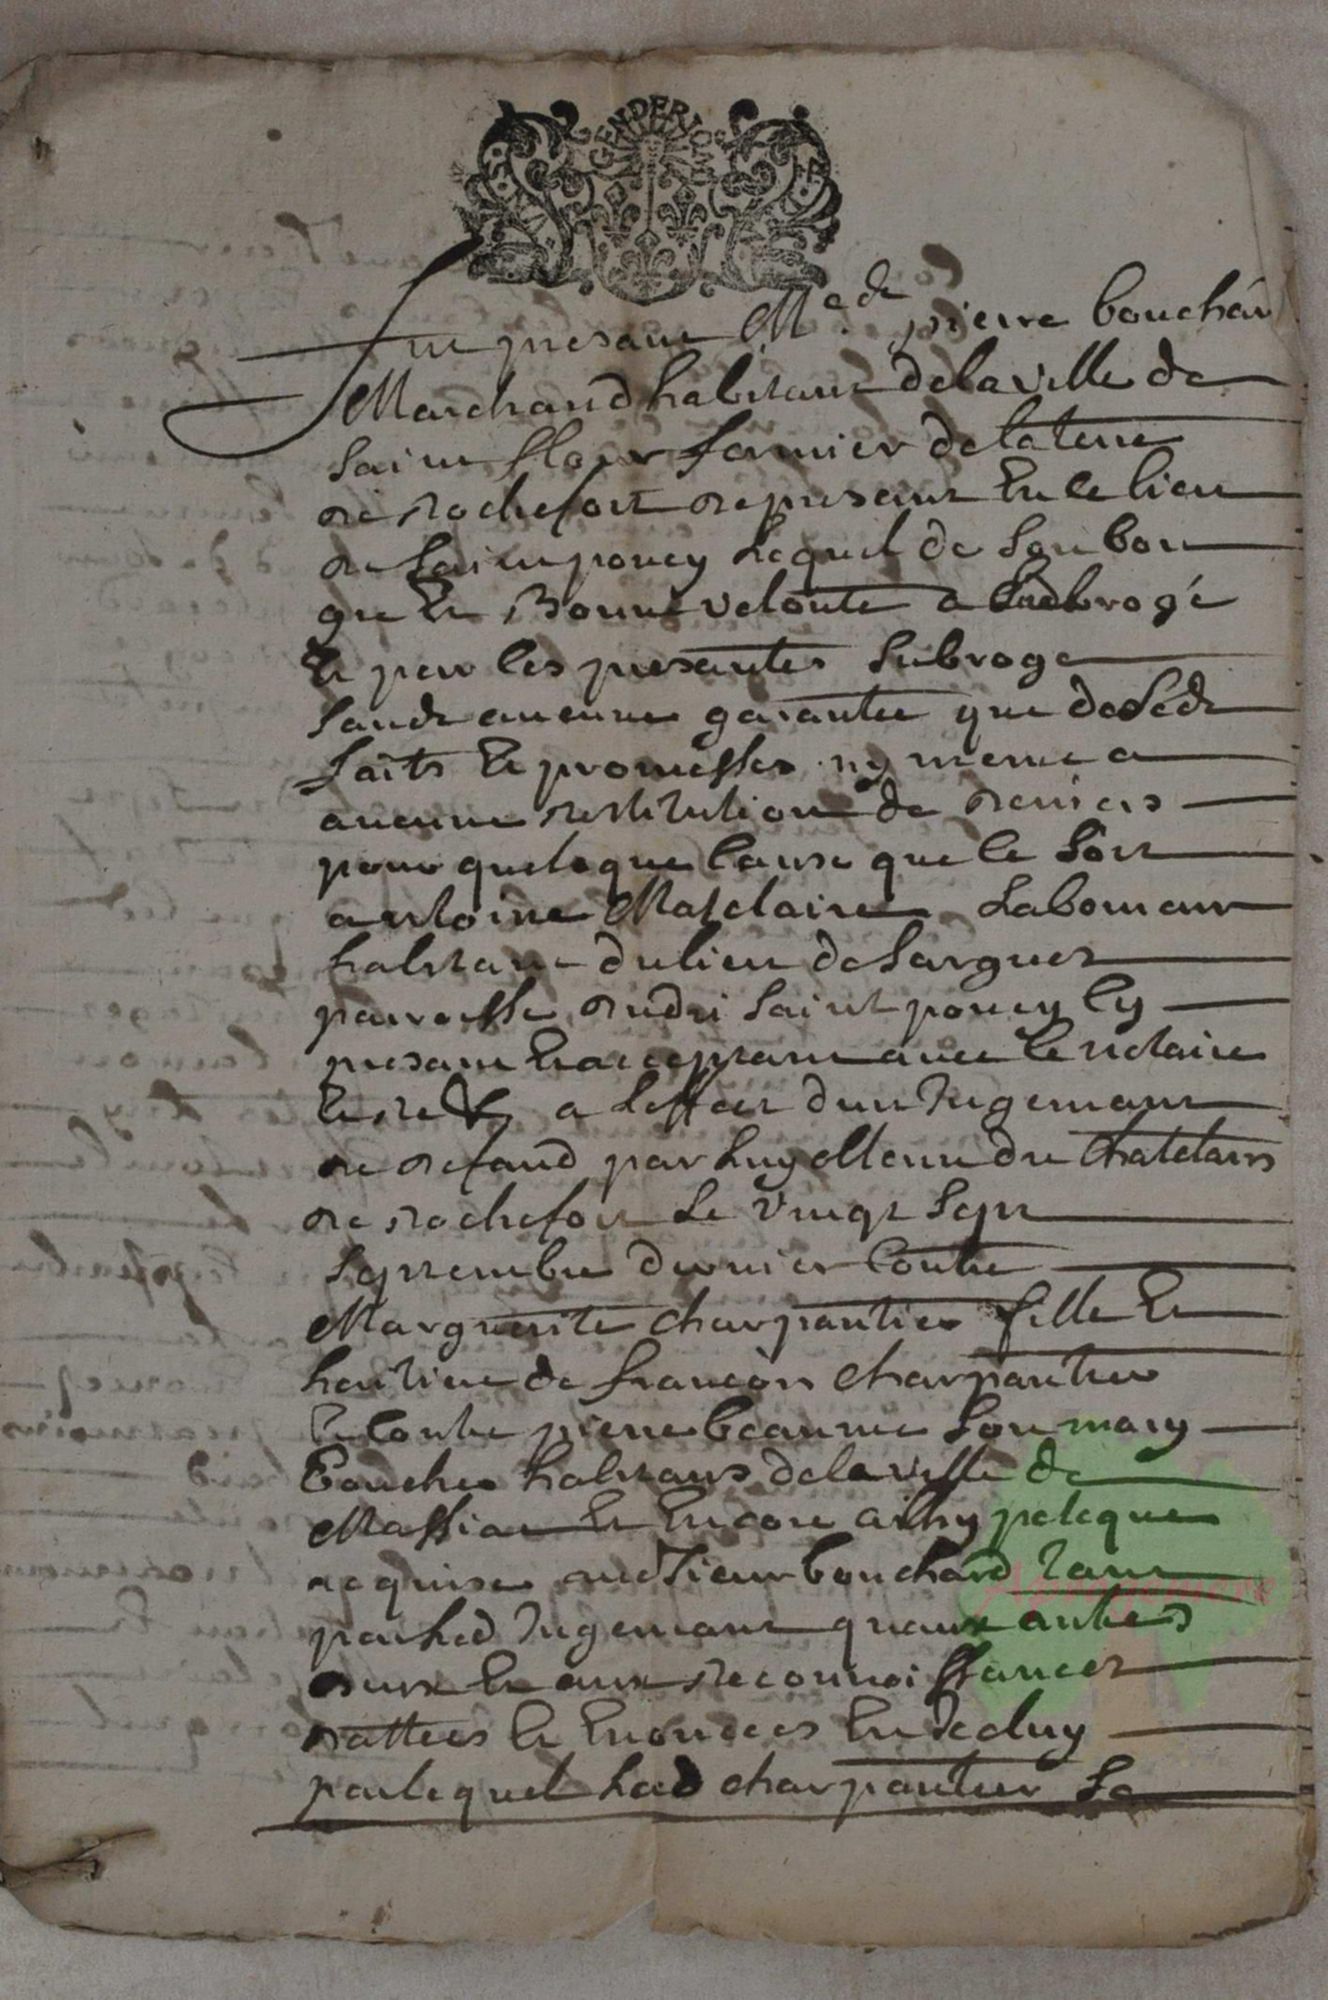 GENDER
fut presant Me de pierre bouchar
Marchand habitant de la ville de
saint flour fermier de la terre
de rochefort de presant en ce lieu
de saint poncy lequel de son bon
gre et bonne volonte a subrogé
et par les presantes subroge
sands aucune garantee que de seds
faits et promesses ny meme a
aucune restitution de deniers
pour quelque cause que ce soit
antoine laboureur
habitant du lieu de sargues
parroesse dudi saint poncy icy
presant et acceptant avec le notaire
a leffect dun jugemant
de defand par luy obtenu du chatelain
de rochefort le vingt sept
septembre dernier contre
Marguerite charpantier fille et
heritiere de francois charpantier
et contre pierre beaune son mary
bouchers habitans de la ville de
Massiac et encore
acquise audt sieur bouchard tant
par led jugemant quaux autres
eux et aux reconnoissances
dattees et enoncees en iceluy
par lequel lad charpantier se
Apragenere